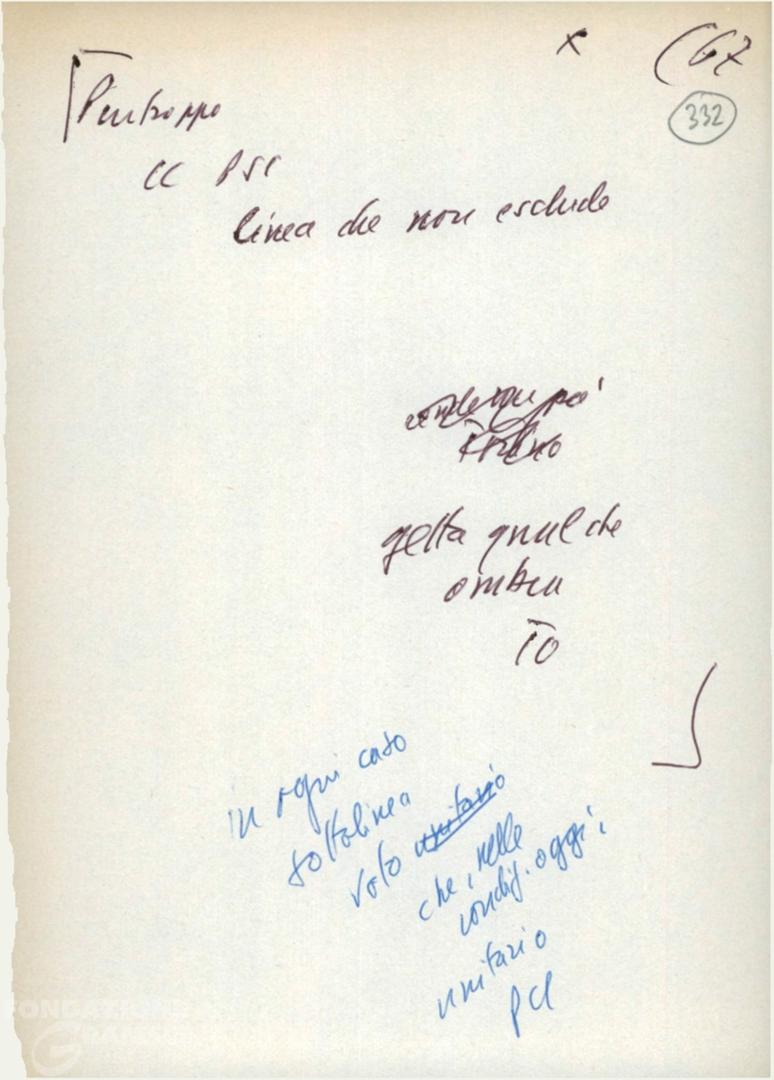 x
(67
332
Purtroppo
CC PSI
linea che non esclude
getta qualche
ombra
TO
in ogni caso
sottolinea
voto unitario
che, nelle
condiz. oggi,
unitario
PCI
FONDAZIONE
GRAMSCI